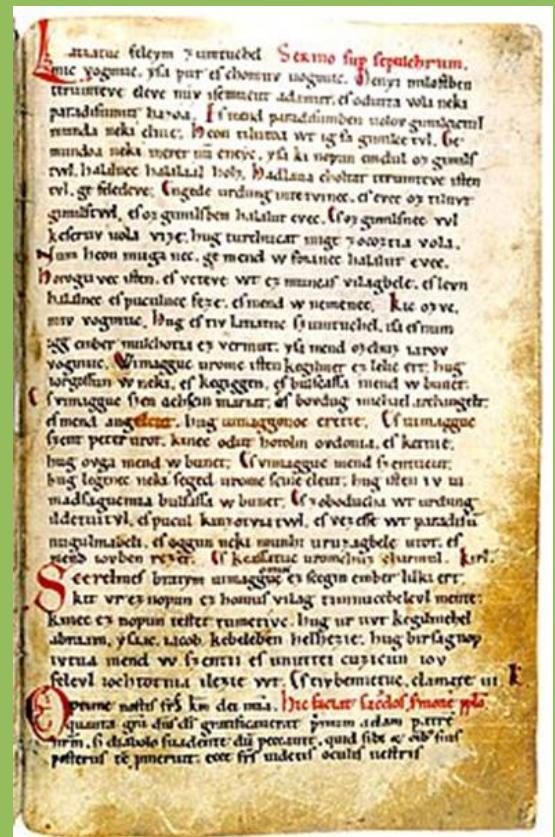 Latiatuc feleym zumtuchel Sermo sup sepulchrum.
mic vogmuc. ysa pur es chomuv uogmuc. Menyi milostben
terumteve eleve miv isemucut adamut. es odutta vola neki
paradisumut hazoa. Es mend paradisumben uolov gimilcictul
munda neki elnie. Heon tilutoa wt ig fa gimilce tvl. Ge
mundoa neki meret nū eneyc. ysa ki nopun emdul oz gimils
twl. halalnec halalaal holz. Hadlaua choltat terumteve isten
tvl. ge feledeve. Engede urdung intetvinec. es evec oz tiluvt
gimilstwl. es oz gimilsben halalut evec. Es oz gimilsnec vvl
keseruv uola vize. hug turchucat mige zocoztia vola.
Num heon muga nec. ge mend w foianec halalut evec.
Horogu vec isten. es veteve wt ez muncas vilagbele. es levn
halalnec es puculnec feze. es mend w nemenec. Kic ozvc.
miv vogmuc. Hug es tiv latiatuv szumtuchel. isa es num
igg ember mulchotia ez vermut. ysa mend ozchuz iarov
vogmuc. Wimagguc uromc isten kegilmet ez lelic ert. hug
iorgossun w neki. es kegiggen. es bulsassa mend w bunet.
Es vimagguc szen achscin mariat. es bovdug michael archangelt.
es mend angelcut. hug uimaggonoc erette. Es uimagguc
szent peter urot. kinec odut hotolm ovdonia. es ketnie.
hug ovga mend w bunet. Es vimagguc mend szentucut.
hug legenec neki seged uromc scine eleut. hug isten iv ui
madsagucmia bulsassa w bunet. Es zoboducha wt urdung
ildetuitvl. es pucul kinzotviatwl. es vezesse wt paradisu
nugulmabeli. es oggun neki munhi uruzagbele utot. es
mend iovben rezet. Es keassatuc uromchuz charmul. kirl.
Scerelmes bratym uimagguc ez scegin ember lilki ert.
kit vr ez nopun ez homus vilag timnucebelevl mente.
kinec ez nopun testet tumetivc. hug ur uvt kegilmehel
abraam. ysaac. iacob. kebeleben helhezie. hug birsagnop
ivtva mend w szentii es unuttei cuzicun iov
felevl iochtotnia ilezie wt. Es tivbennetuc. clamate iii. k
quanta grā dn̄s ds̄ gratificaverat primum adam patrē
nrm̄. si diabolo suadente dū peccaret. quid sibi &
posteris cē pinerunt. ecce frs̄ videtis oculis uestris